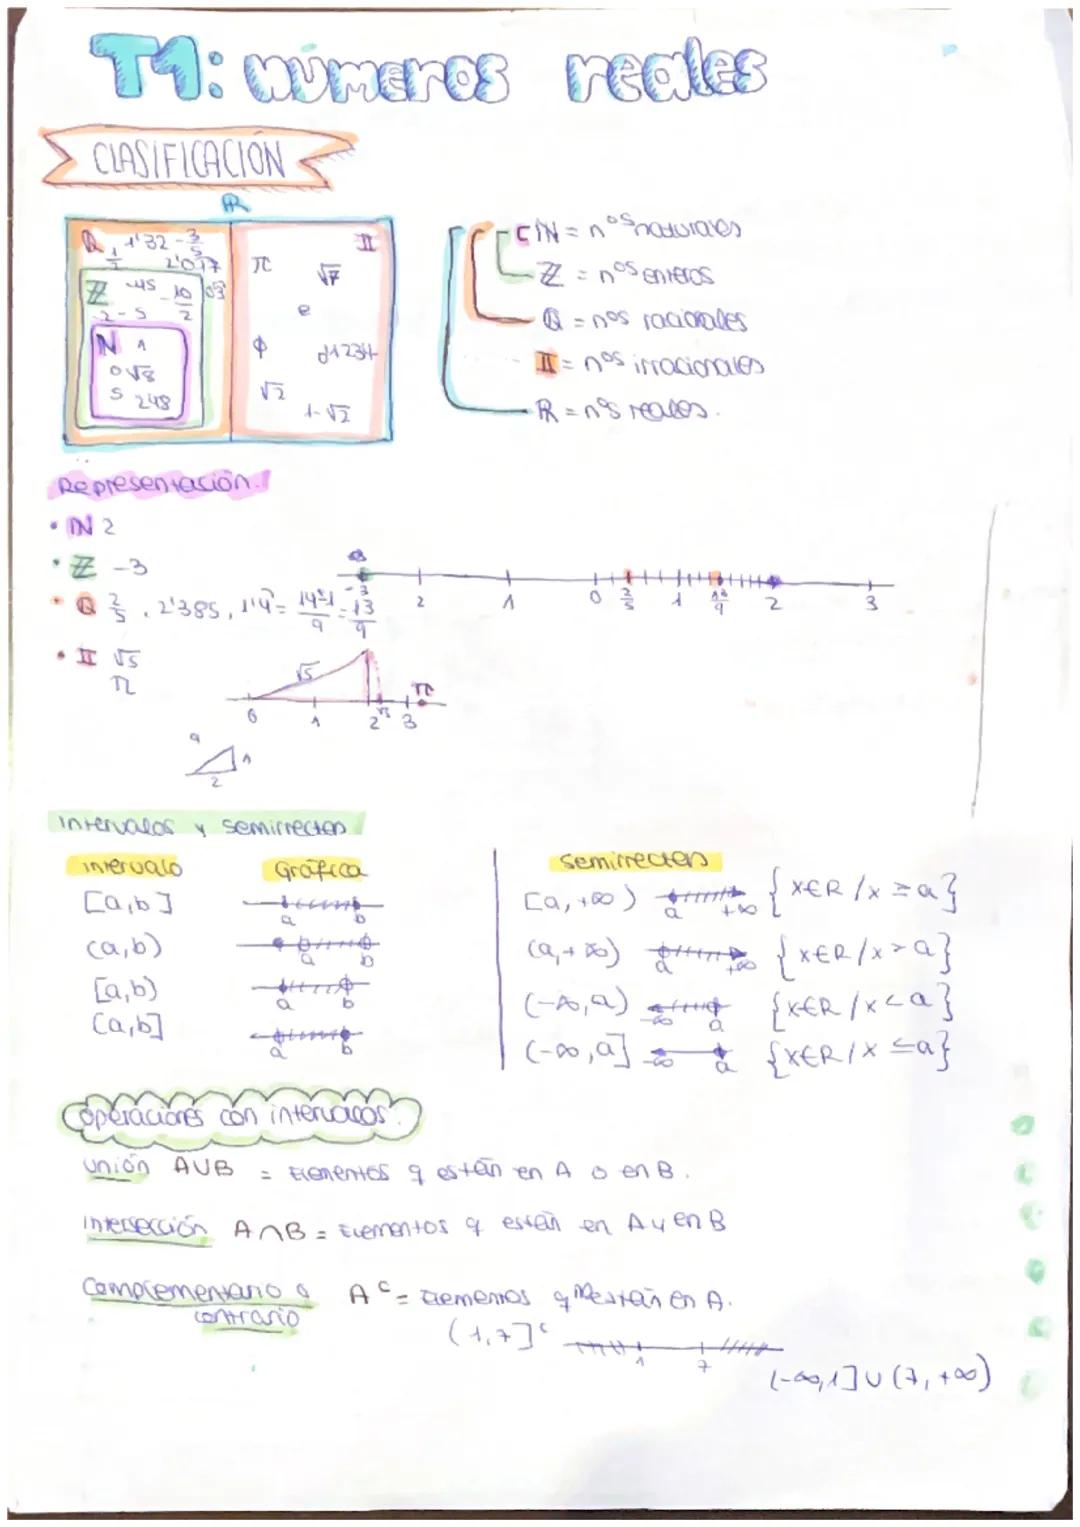 T1: números reales
CLASIFICACIÓN
R
Q 1'32 -3/5 II
1/2 2'017 π √7
Z -45 -10/2 0'3
-2 -5 e
N 1 Φ 0'1234
0 √8
5 248 √2 1-√2
N = nos naturales
Z = nos enteros
Q = nos racionales
II = nos irracionales
R = nos reales.
Representación.
• N 2
• Z -3
• Q 2/5, 2'385, 1'4 = 14-1/9 = 13/9
-3 2 1 0 2/5 1 13/9 2 3
• II √5
π
√5 π
0 1 2 √5 3
a 1
2
intervalos y semirrectas
intervalo Gráfica
[a,b] a b
(a,b) a b
[a,b) a b
(a,b] a b
semirrectas
[a,+∞) a +∞ {x∈R/x≥a}
(a,+∞) a +∞ {x∈R/x>a}
(-∞,a) -∞ a {x∈R/x<a}
(-∞,a] -∞ a {x∈R/x≤a}
operaciones con intervalos.
unión A∪B = Elementos q están en A o en B.
intersección A∩B = Elementos q están en A y en B
Complementario o A^c = Elementos q no están en A.
contrario
(1,7]^c 1 7
(-∞,1]∪(7,+∞)